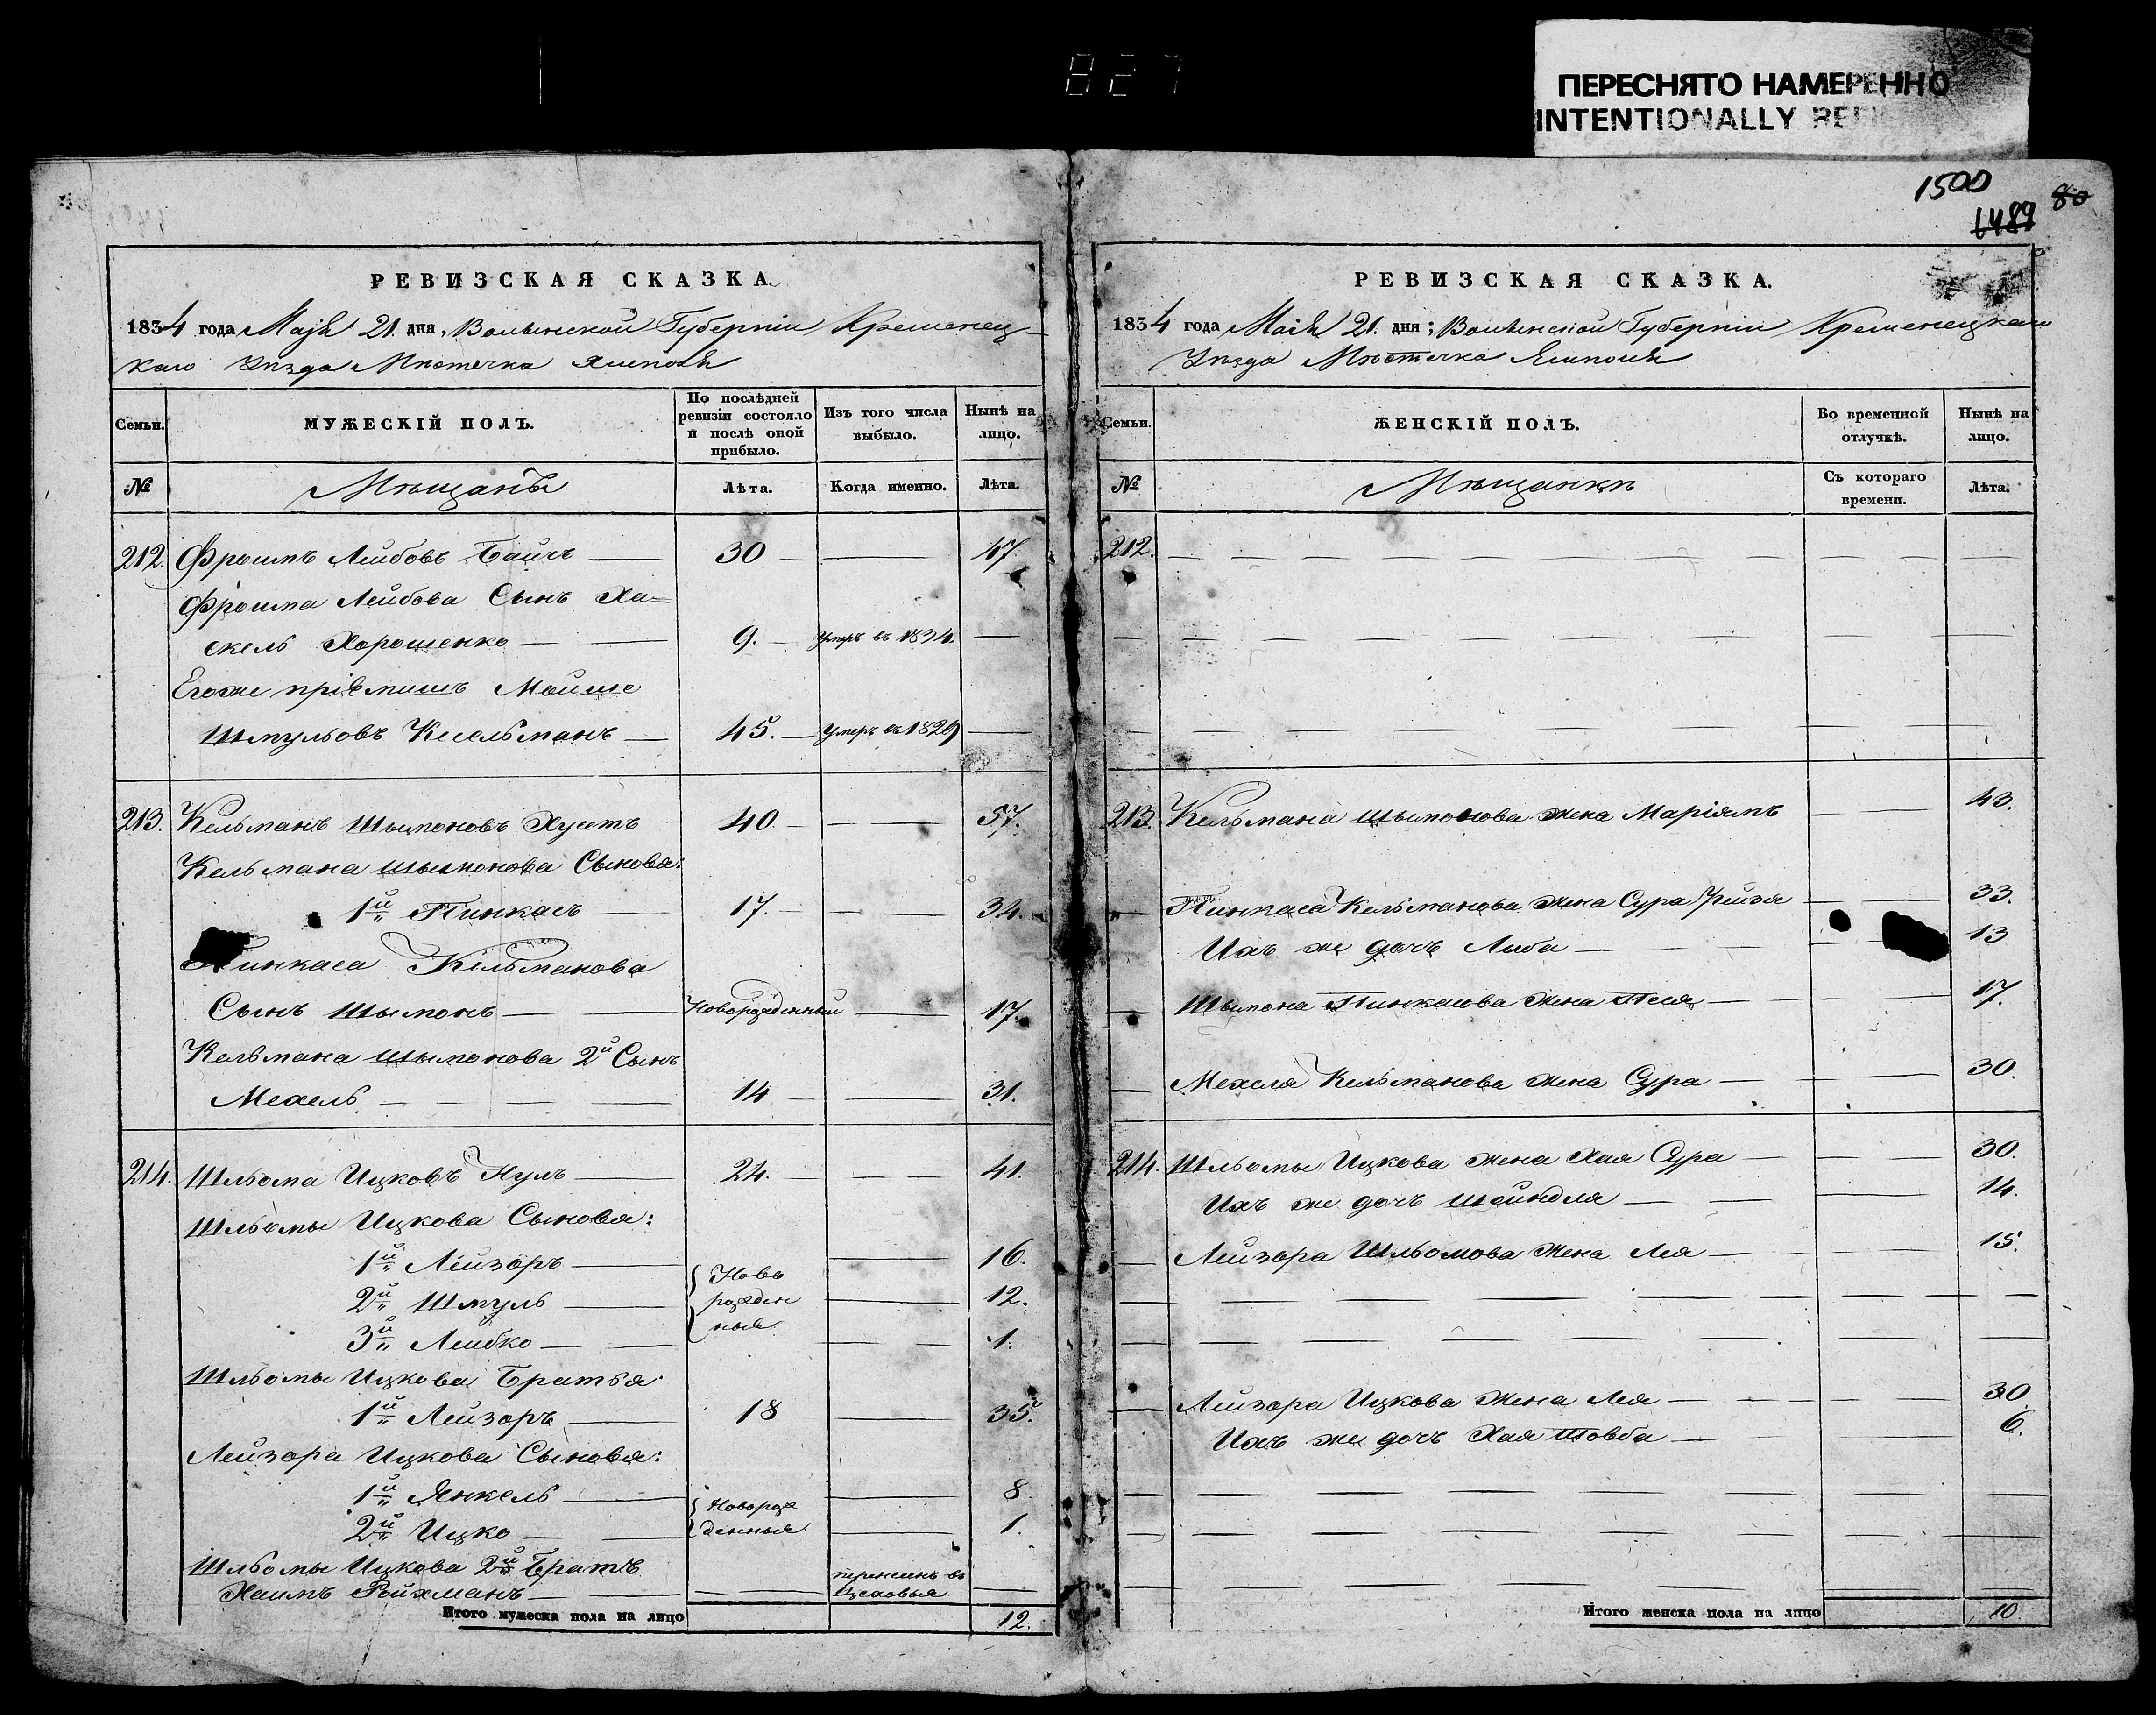 827
ПЕРЕСНЯТО НАМЕРЕННО
INTENTIONALLY
1500
1489
80
РЕВИЗСКАЯ СКАЗКА.
1834 года Маія 21. дня, Волынской Губерніи Кременец-
каго Уѣзда Мѣстечка Ямполя
Семьи.
МУЖЕСКІЙ ПОЛЪ.
По послѣдней ревизіи состояло и послѣ оной прибыло.
Изъ того числа выбыло.
Нынѣ на лицо.
№
Мѣщанъ
Лѣта.
Когда именно.
Лѣта.
212. Фроимъ Лейбовъ 30 47.
Фроима Лейбова Сынъ Ха=
скель Хорошенко 9. Умеръ въ 1834.
Егоже пріемышъ Мойше
Шмульовъ Кесельманъ 45. Умеръ въ 1829
213. Кельманъ Шымоновъ 40. 57.
Кельмана Шымонова Сыновья:
1й Пинкасъ 17. 34.
Пинкаса Кельманова
Сынъ Шымонъ Новорожденный 17.
Кельмана Шымонова 2й Сынъ
Мехель 14 31.
214. Шльома Ицковъ Нуль 24. 41.
Шльомы Ицкова Сыновья:
1й Лейзоръ 16.
2й Шмуль Новорожденныя 12.
3й Лейбко 1.
Шльомы Ицкова Братья
1й Лейзоръ 18 35.
Лейзора Ицкова Сыновья:
1й Янкель Новорожденныя 8.
2й Ицко 1.
Шльомы Ицкова 2й Братъ
Хаимъ Ройхманъ
Итого мужеска пола на лицо 12.
РЕВИЗСКАЯ СКАЗКА.
1834 года Маія 21. дня; Волынской Губерніи Кременецкаго
Уѣзда Мѣстечка Ямполя
Семьи.
ЖЕНСКІЙ ПОЛЪ.
Во временной отлучкѣ.
Нынѣ на лицо.
№
Мѣщанкѣ
Съ котораго времени.
Лѣта.
212.
213. Кельмана Шымонова жена Маріямъ 43.
Пинкаса Кельманова жена Сура Фейга 33.
Ихъ же дочъ Лыба 13
Шымона Пинкасова жена Песя 17.
Мехеля Кельманова жена Сура 30.
214. Шльомы Ицкова жена Хая Сура 30.
Ихъ же дочъ Шейндля 14.
Лейзора Шльомова жена Лея 15.
Лейзора Ицкова жена Лея 30.
Ихъ же дочъ Хая Товба 6.
Итого женска пола на лицо 10.